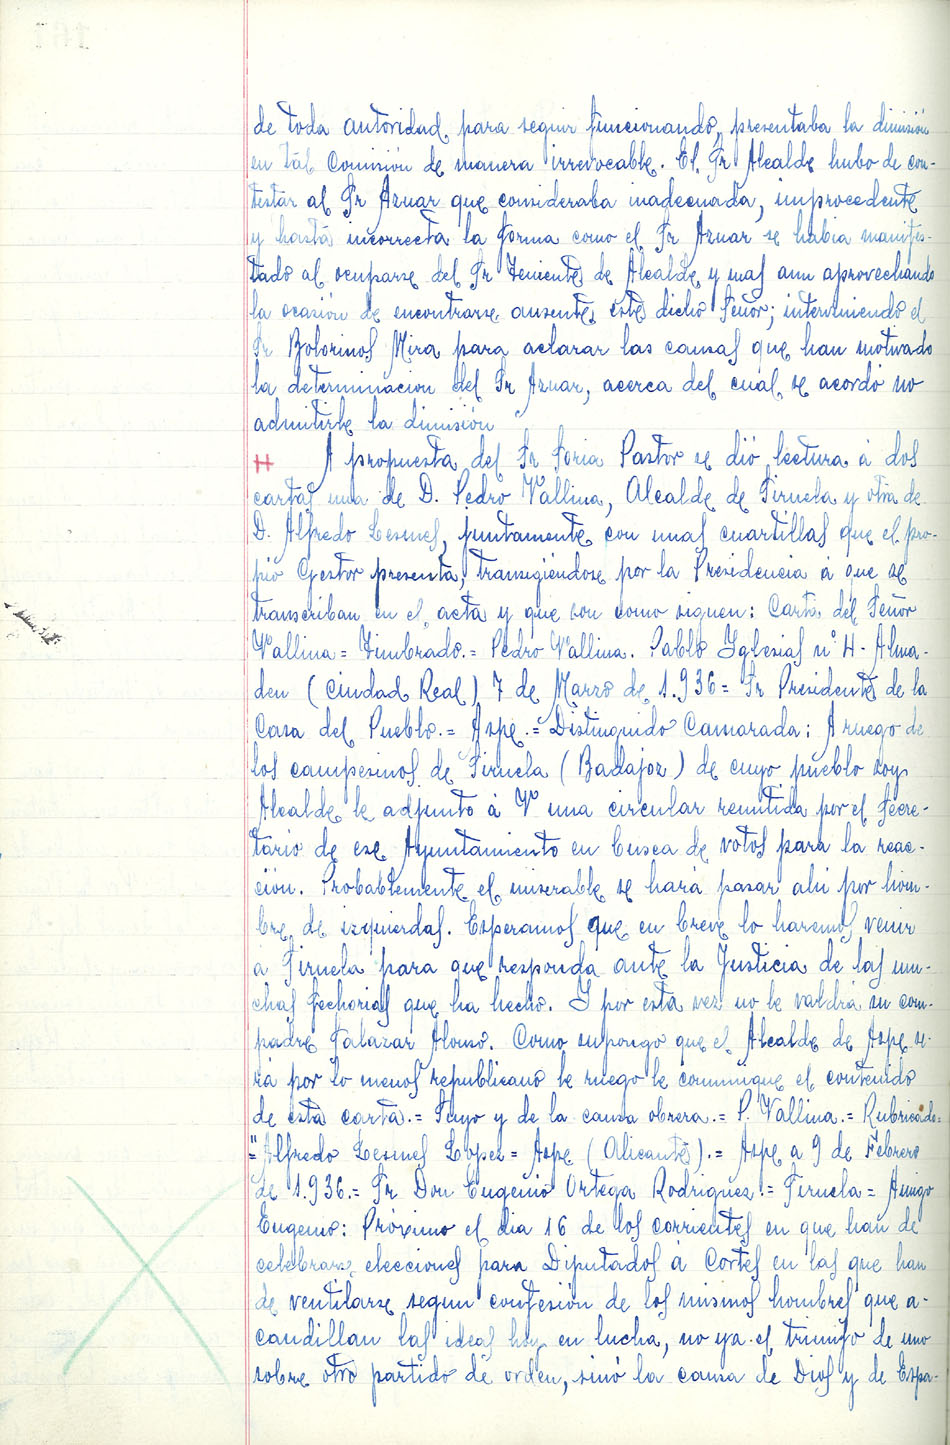 de toda autoridad para seguir funcionando, presentaba la dimisión
en tál Comisión de manera irrevocable. El Sr Alcalde hubo de con-
testar al Sr Aznar que consideraba inadecuada, improcedente
y hasta incorrecta la forma como el Sr Aznar se habia manifes-
tado al ocuparse del Sr Teniente de Alcalde y mas aun aprovechando
la ocasión de encontrarse ausente este dicho Señor; interviniendo el
Sr Bolorinos Mira para aclarar las causas que han motivado
la determinacion del Sr Aznar, acerca del cual se acordó no
admitirle la dimisión
A propuesta del Sr Soria Pastor se dió lectura á dos
cartas una de D. Pedro Vallina, Alcalde de Siruela y otra de
D. Alfredo Lesmes, juntamente con unas cuartillas que el pro-
pio Gestor presenta, transigiéndose por la Presidencia á que se
transcriban en el acta y que son como siguen: Carta del Señor
Vallina = Timbrado. = Pedro Vallina. Pablo Iglesias nº 4 - Alma-
den (Ciudad Real) 7 de Marzo de 1.936 = Sr Presidente de la
Casa del Pueblo. = Aspe. = Distinguido Camarada: A ruego de
los campesinos de Siruela (Badajoz) de cuyo pueblo soy
Alcalde le adjunto á V una circular remitida por el Secre-
tario de ese Ayuntamiento en busca de votos para la reac-
ción. Probablemente el miserable se hará pasar ahi por hom-
bre de izquierdas. Esperamos que en breve lo haremos venir
a Siruela para que responda ante la Justicia de las mu-
chas fechorias que ha hecho. Y por esta vez no le valdrá su com-
padre Salazar Alonso. Como supongo que el Alcalde de Aspe se-
rá por lo menos republicano le ruego le comunique el contenido
de esta carta. = Suyo y de la causa obrera. = P. Vallina. = Rubricado =
= "Alfredo Lesmes López = Aspe (Alicante). = Aspe a 9 de Febrero
de 1.936. = Sr Don Eugenio Ortega Rodriguez. = Siruela = Amigo
Eugenio: Próximo el dia 16 de los corrientes en que han de
celebrarse elecciones para Diputados á Cortes en las que han
de ventilarse segun confesión de los mismos hombres que a-
caudillan las ideas hoy en lucha, no ya el triunfo de uno
sobre otro partido de orden, sinó la causa de Dios y de Espa-